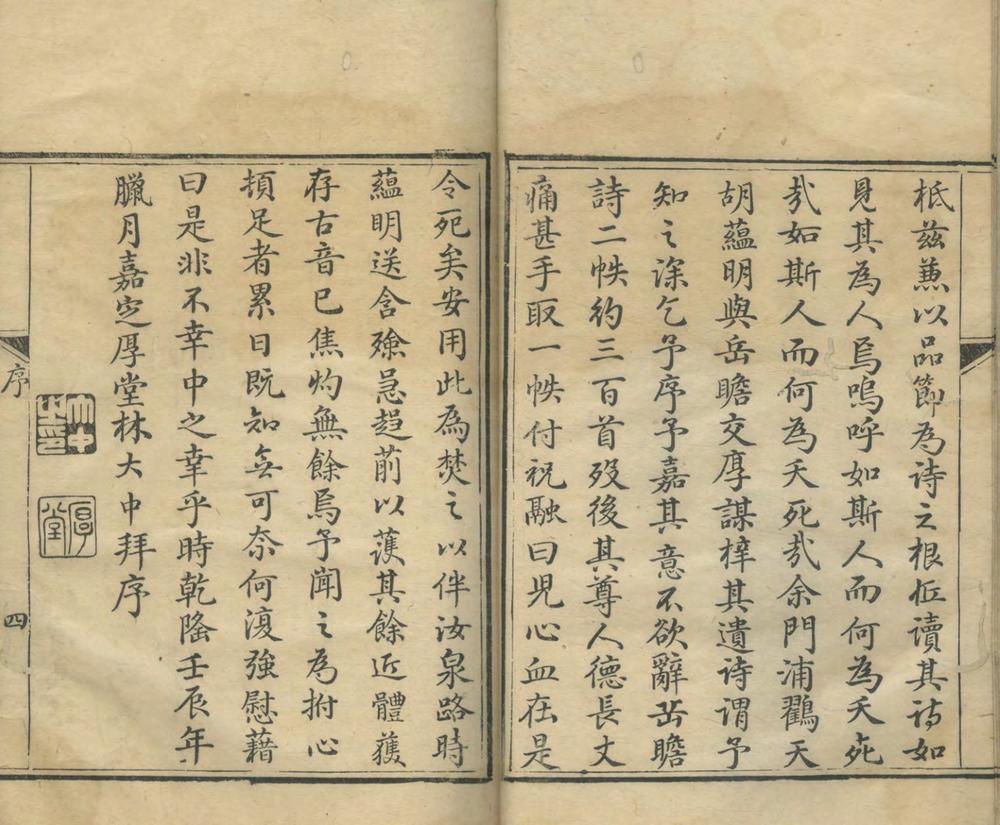 柢兹蕙以品節為诗之根柢讀其诗如
見其為人烏嗚呼如斯人而何為夭死
㢤如斯人而何為夭死㢤余門浦鸜天
胡蘊明與岳瞻交厚謀梓其遺诗谓予
知之深乞予序予嘉其意不欲辭岳瞻
詩二帙约三百首殁後其尊人德長丈
痛甚手取一帙付祝融曰児心血在是
今死矣安用此為焚之以伴汝泉路時
蘊明送含殮急趋前以蒦其餘近體獲
存古音已焦灼無餘烏予聞之為拊心
頓足者累日既知无可奈何復強慰藉
曰是非不幸中之幸乎時乾隆壬辰年
臘月嘉定厚堂林大中拜序
大中之印
厚堂
序
四